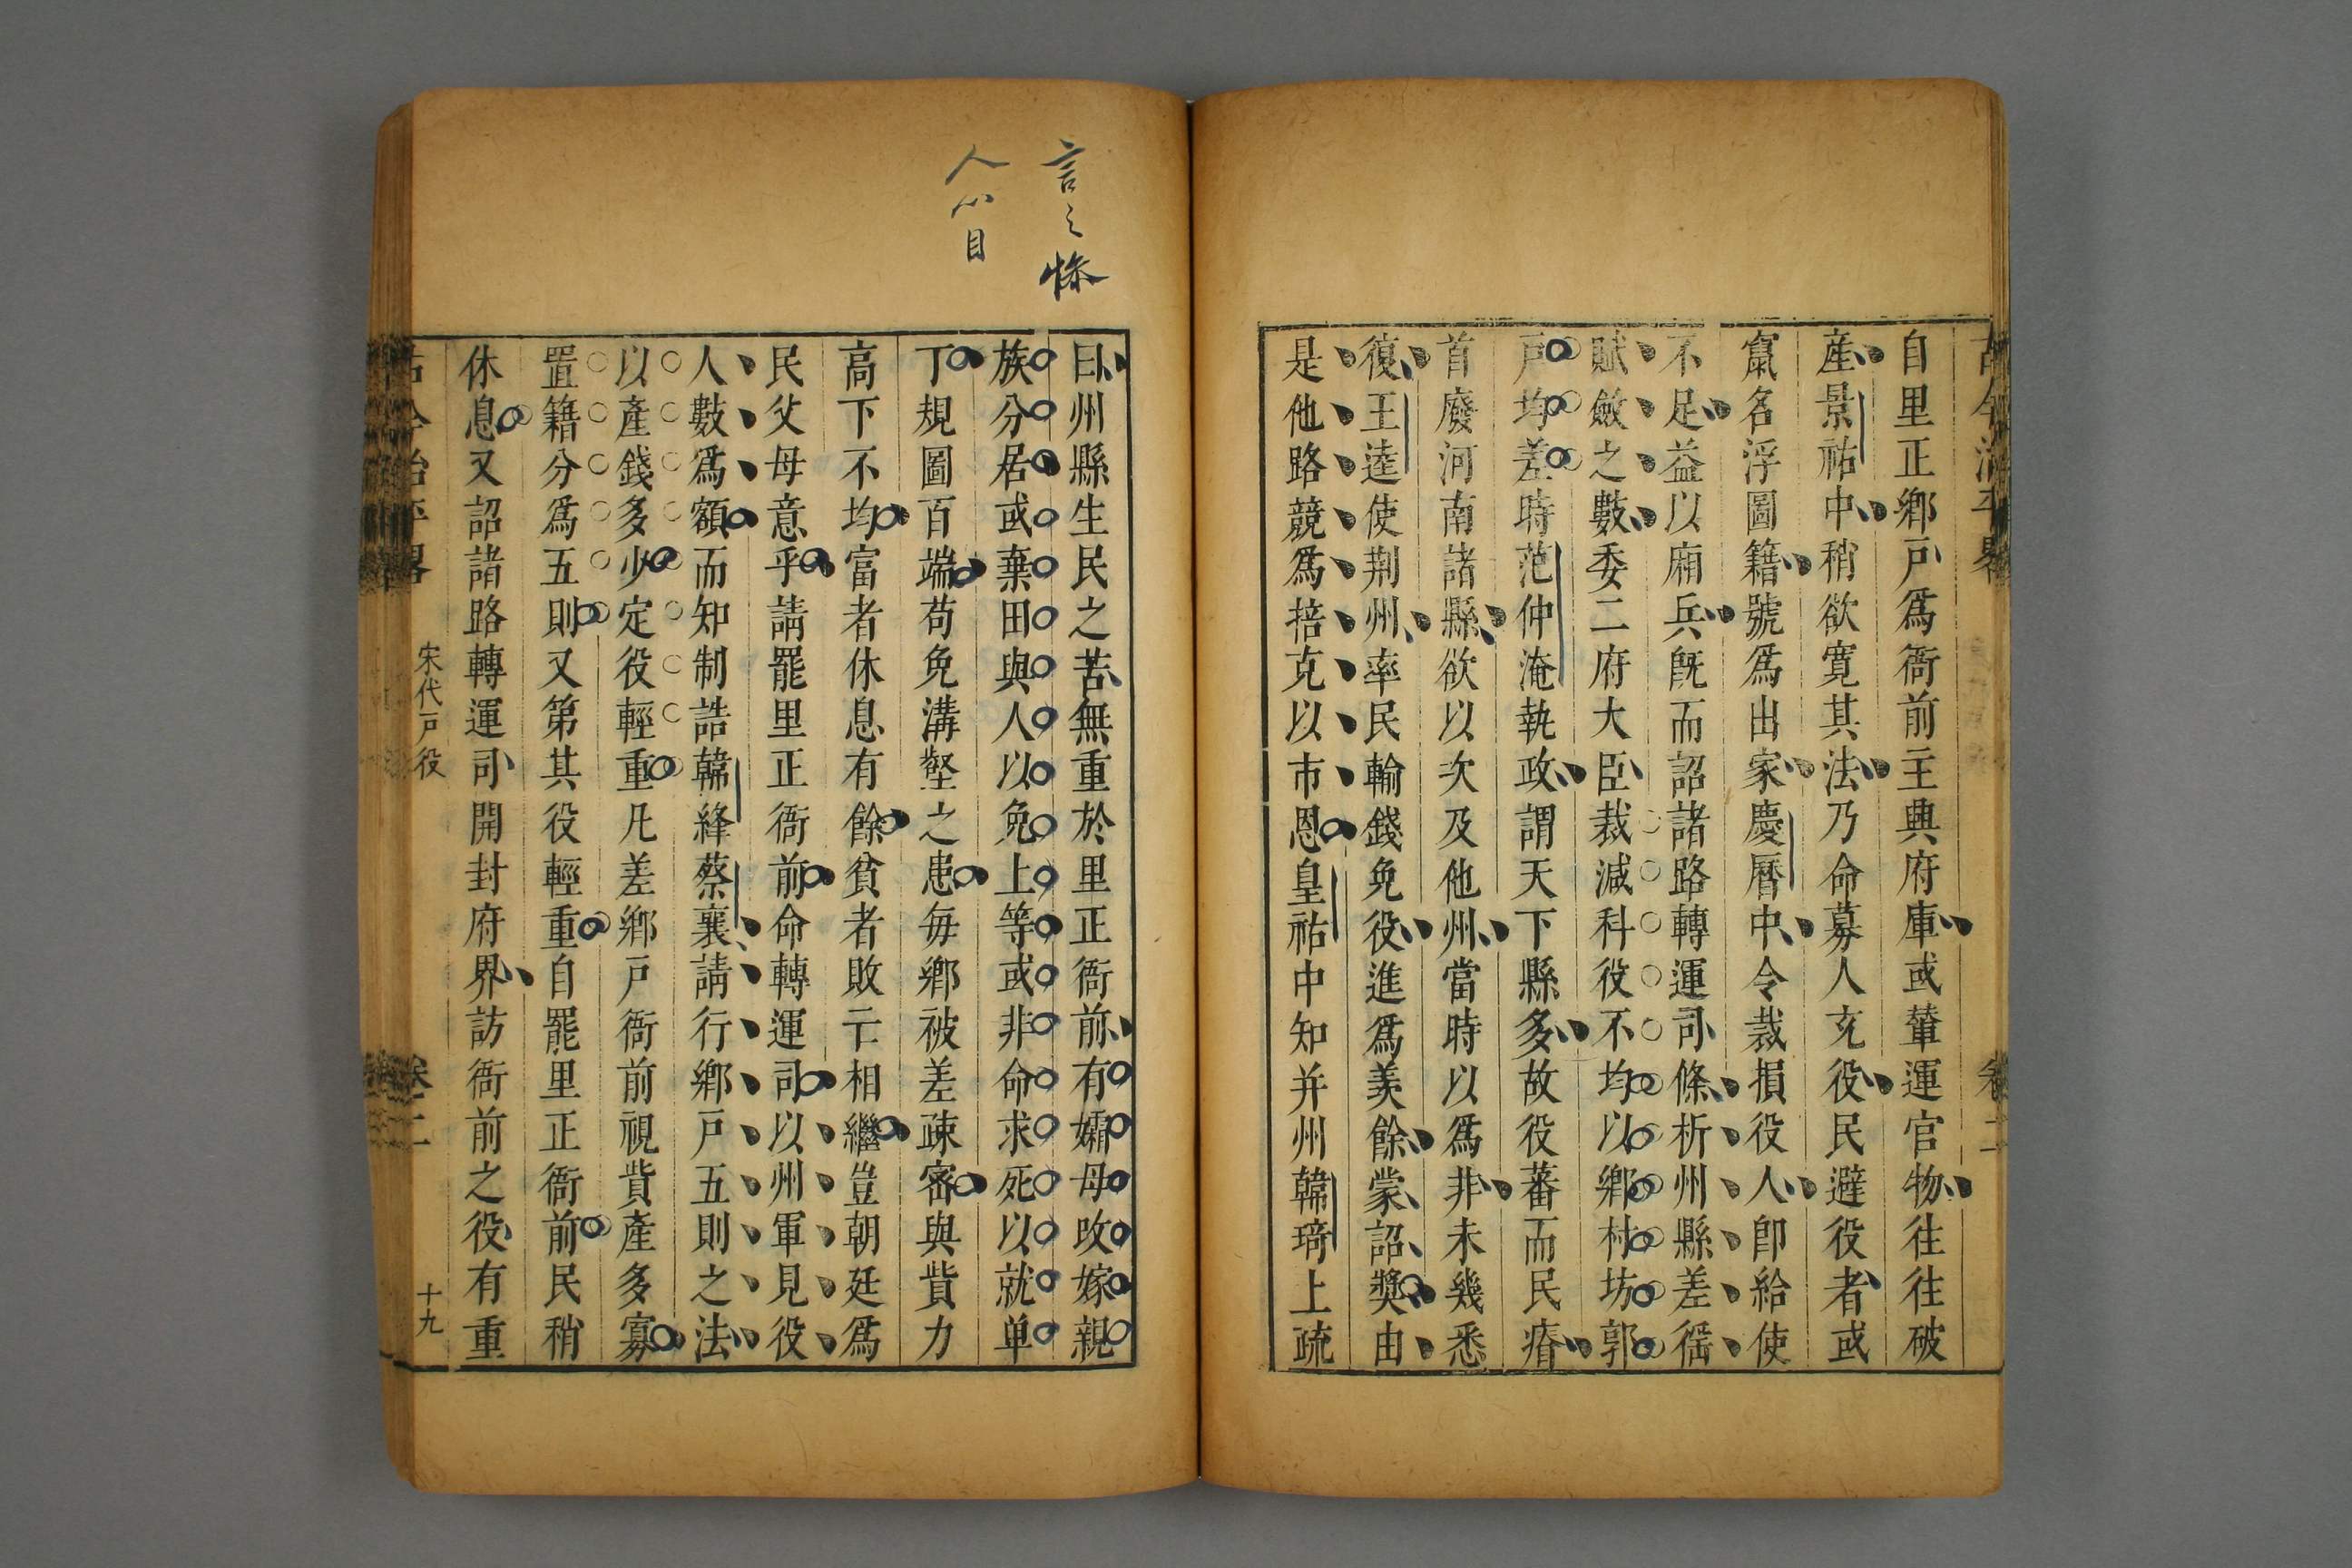 自里正鄉戸爲衙前主典府庫或輦運官物往往破
產景祐中稍欲寛其法乃命募人充役民避役者或
竄名浮圖籍號爲出家慶曆中令裁損役人卽給使
不足益以廂兵旣而詔諸路轉運司條析州縣差徭
賦斂之數委二府大臣裁減科役不均以鄉村坊郭
戸均差時范仲淹執政謂天下縣多故役蕃而民瘠
首廢河南諸縣欲以次及他州當時以爲非未幾悉
復王逵使荆州率民輸錢免役進爲羨餘蒙詔奬由
是他路競爲掊克以市恩皇祐中知并州韓琦上疏
言之慘
人心目
曰州縣生民之苦無重於里正衙前有孀母改嫁親
族分居或棄田與人以免上等或非命求死以就单
丁規圖百端苟免溝壑之患每鄉被差疎密與貲力
高下不均富者休息有餘貧者敗亡相繼豈朝廷爲
民父母意乎請罷里正衙前命轉運司以州軍見役
人數爲額而知制誥韓絳蔡襄請行鄉戸五則之法
以產錢多少定役輕重凡差鄉戸衙前視貲產多寡
置籍分爲五則又第其役輕重自罷里正衙前民稍
休息又詔諸路轉運司開封府界訪衙前之役有重
古今治平畧
宋代戸役
卷二
十九